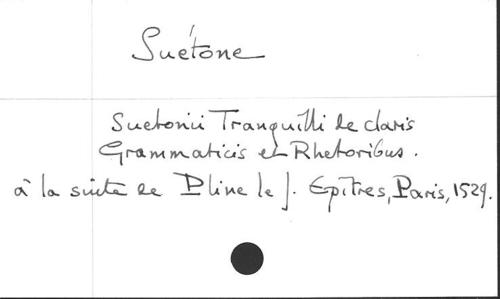 Suétone
Suetonii Tranquilli de claris
Grammaticis et Rhetoribus.
à la suite de Pline le J. Epîtres, Paris, 1529.